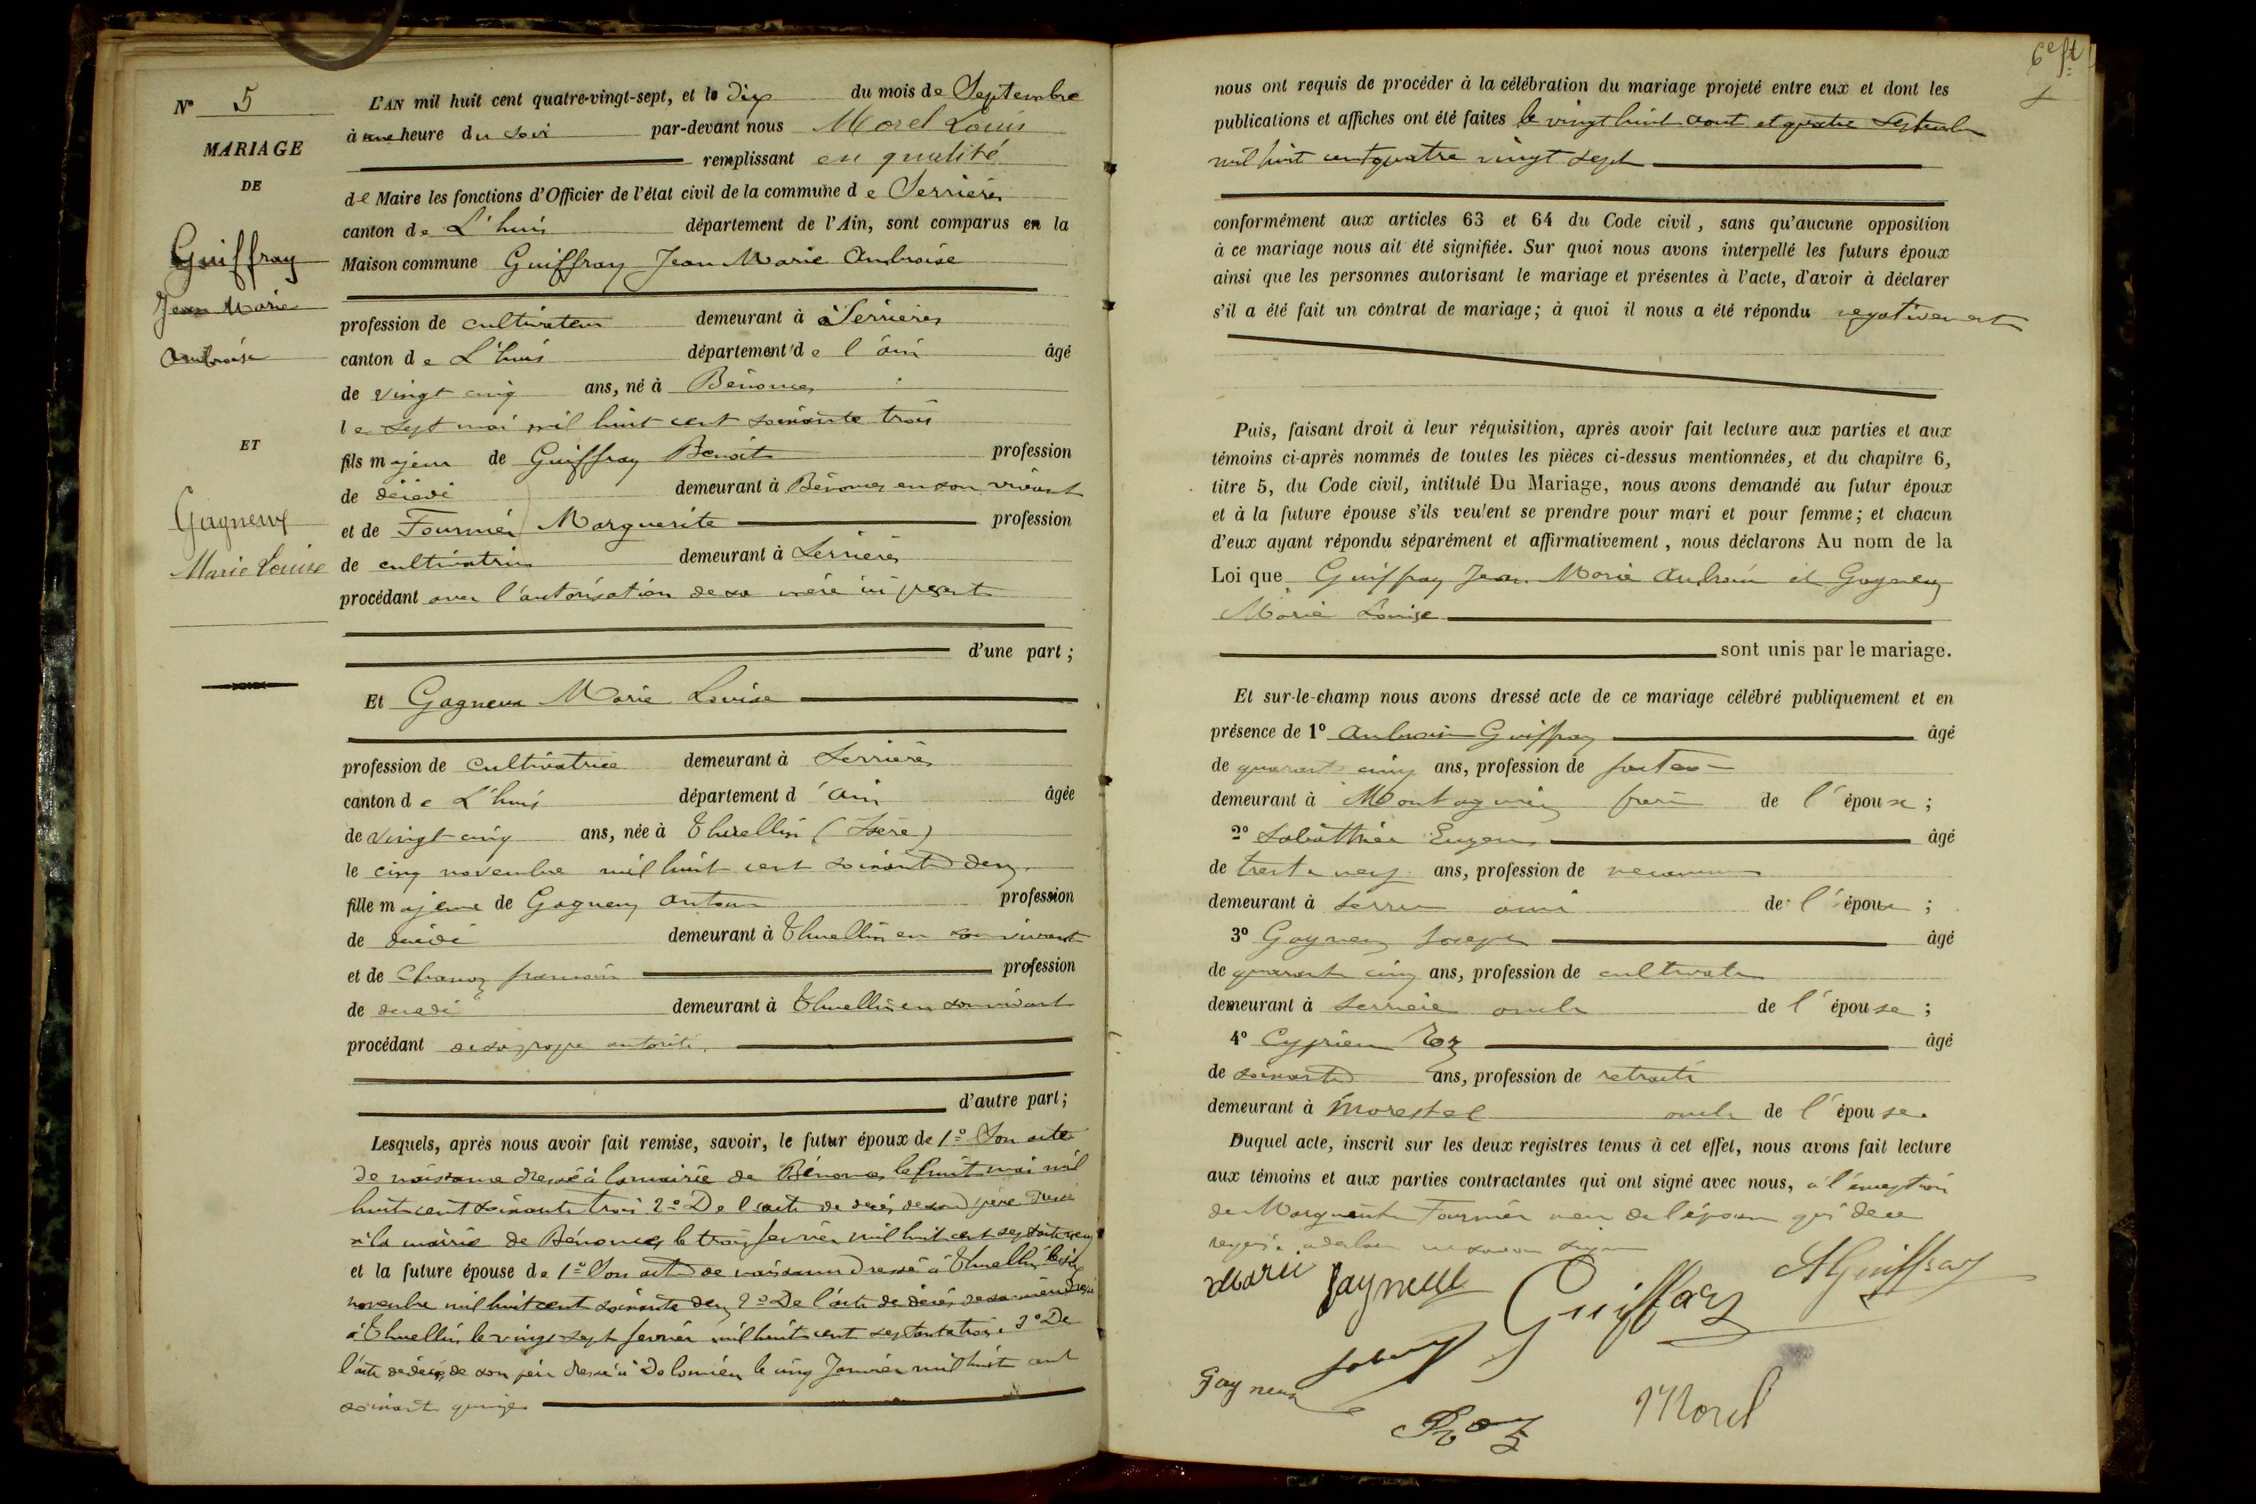 N° 5
MARIAGE
DE
Guiffray
Jean Marie
Ambroise
ET
Gagneux
Marie Louise
L'AN mil huit cent quatre-vingt-sept, et le dix du mois de Septembre
à une heure du soir par-devant nous Morel Louis
remplissant en qualité
de Maire les fonctions d'Officier de l'état civil de la commune de Serrières
canton de L'huis département de l'Ain, sont comparus en la
Maison commune Guiffray Jean Marie Ambroise
profession de cultivateur demeurant à Serrières
canton de L'huis département de l'ain âgé
de vingt cinq ans, né à Bénonces
le sept mai mil huit cent soixante trois
fils majeur de Guiffray Benoit profession
de décédé demeurant à Bénonces en son vivant
et de Fournier Marguerite profession
de cultivatrice demeurant à Serrières
procédant avec l'autorisation de sa mère ici présente
d'une part;
Et Gagneux Marie Louise
profession de cultivatrice demeurant à Serrières
canton de L'huis département d'ain âgée
de vingt cinq ans, née à Thuellin (Isère)
le cinq novembre mil huit cent soixante deux
fille majeure de Gagneux antoine profession
de décédé demeurant à Thuellin en son vivant
et de Chanoz profession
de décédé demeurant à Thuellin en son vivant
procédant de sa propre autorité.
d'autre part;
Lesquels, après nous avoir fait remise, savoir, le futur époux de 1° Son acte
de naissance dressé à la mairie de Bénonces le huit mai mil
huit cent soixante trois 2° De l'acte de décès de son père dressé
à la mairie de Bénonces le trois fevrier mil huit cent septante
et la future épouse de 1° Son acte de naissance dressé à Thuellin le six
novembre mil huit cent soixante deux 2° De l'acte de décès de sa mère dressé
à Thuellin le vingt sept fevrier mil huit cent septante trois. 3° De
l'acte de décès de son père dressé à Dolomieu le cinq Janvier mil huit cent
soixante quinze
6e ft
nous ont requis de procéder à la célébration du mariage projeté entre eux et dont les
publications et affiches ont été faites le vingt huit aout et quatre septembre
mil huit cent quatre vingt sept
conformément aux articles 63 et 64 du Code civil, sans qu'aucune opposition
à ce mariage nous ait été signifiée. Sur quoi nous avons interpellé les futurs époux
ainsi que les personnes autorisant le mariage et présentes à l'acte, d'avoir à déclarer
s'il a été fait un contrat de mariage; à quoi il nous a été répondu negativement
Puis, faisant droit à leur réquisition, après avoir fait lecture aux parties et aux
témoins ci-après nommés de toutes les pièces ci-dessus mentionnées, et du chapitre 6,
titre 5, du Code civil, intitulé Du Mariage, nous avons demandé au futur époux
et à la future épouse s'ils veulent se prendre pour mari et pour femme; et chacun
d'eux ayant répondu séparément et affirmativement, nous déclarons Au nom de la
Loi que Guiffray Jean Marie Ambroise et Gagneux
Marie Louise
sont unis par le mariage.
Et sur-le-champ nous avons dressé acte de ce mariage célébré publiquement et en
présence de 1° Ambroise Guiffray âgé
de quarante cinq ans, profession de facteur
demeurant à Montagnieu de l'épouse;
2° Sabatthier Eugene âgé
de trente neuf ans, profession de
demeurant à ami de l'épouse;
3° Gagneux Joseph âgé
de quarante cinq ans, profession de cultivateur
demeurant à Serrières oncle de l'épouse;
4° Cyprien Roz âgé
de soixante ans, profession de retraité
demeurant à Morestel oncle de l'épouse.
Duquel acte, inscrit sur les deux registres tenus à cet effet, nous avons fait lecture
aux témoins et aux parties contractantes qui ont signé avec nous, à l'exception
de Marguerite Fournier mère de l'époux qui de ce
requise a déclaré ne savoir signer
Marie Gagneux Guiffray AGuiffray
Gagneux Roz Morel